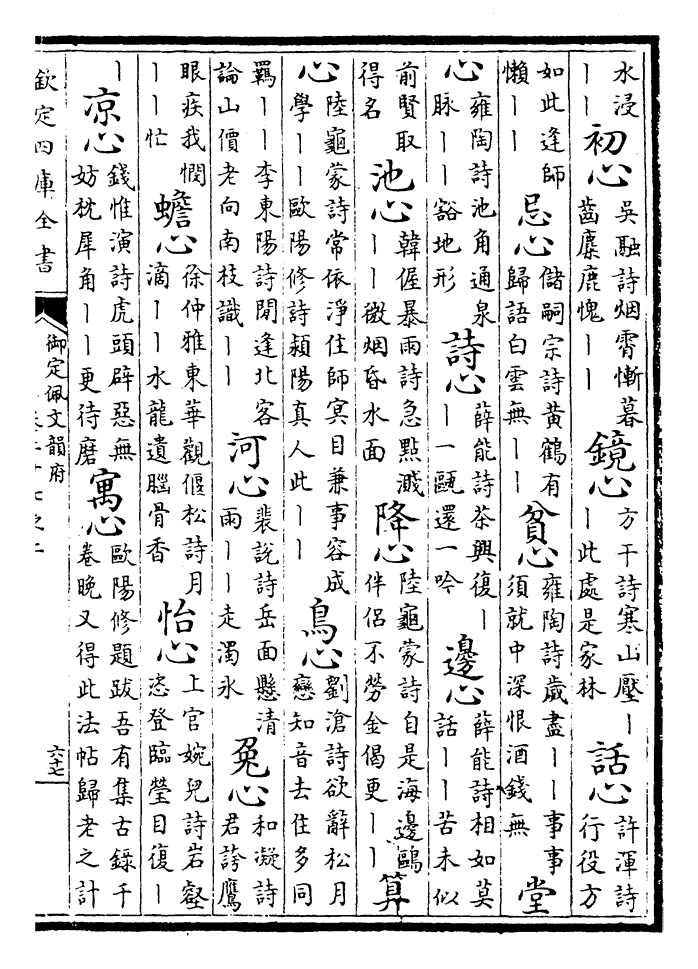 水浸丨丨初心吳融詩烟霄慚暮齒麋鹿愧丨丨鏡心方干詩寒山壓丨丨此處是家林話心許渾詩行役方
如此逢師懶丨丨忌心儲嗣宗詩黃鶴有歸語白雲無丨丨貧心雍陶詩歲盡丨丨事事須就中深恨酒錢無堂
心雍陶詩池角通泉脉丨丨豁地形詩心薛能詩茶興復丨丨一甌還一吟邊心薛能詩相如莫話丨丨苦未似
前賢取得名池心韓偓暴雨詩急點濺丨丨微烟昏水面降心陸龜蒙詩自是海邊鷗伴侶不勞金偈更丨丨算
心陸龜蒙詩常依淨住師冥目兼事容成學丨丨歐陽修詩潁陽真人此丨丨鳥心劉滄詩欲辭松月戀知音去住多同
羇丨丨李東陽詩閒逢北客論山價老向南枝識丨丨河心裴說詩岳面懸清雨丨丨走濁氷兔心和凝詩君誇鷹
眼疾我憫丨丨忙蟾心徐仲雅東華觀偃松詩月滴丨丨水龍遺腦骨香怡心上官婉兒詩岩壑恣登臨瑩目復丨
丨凉心錢惟演詩虎頭辟惡無妨枕犀角丨丨更待磨寓心歐陽修題跋吾有集古錄千卷晚又得此法帖歸老之計
欽定四庫全書
御定佩文韻府
六十七